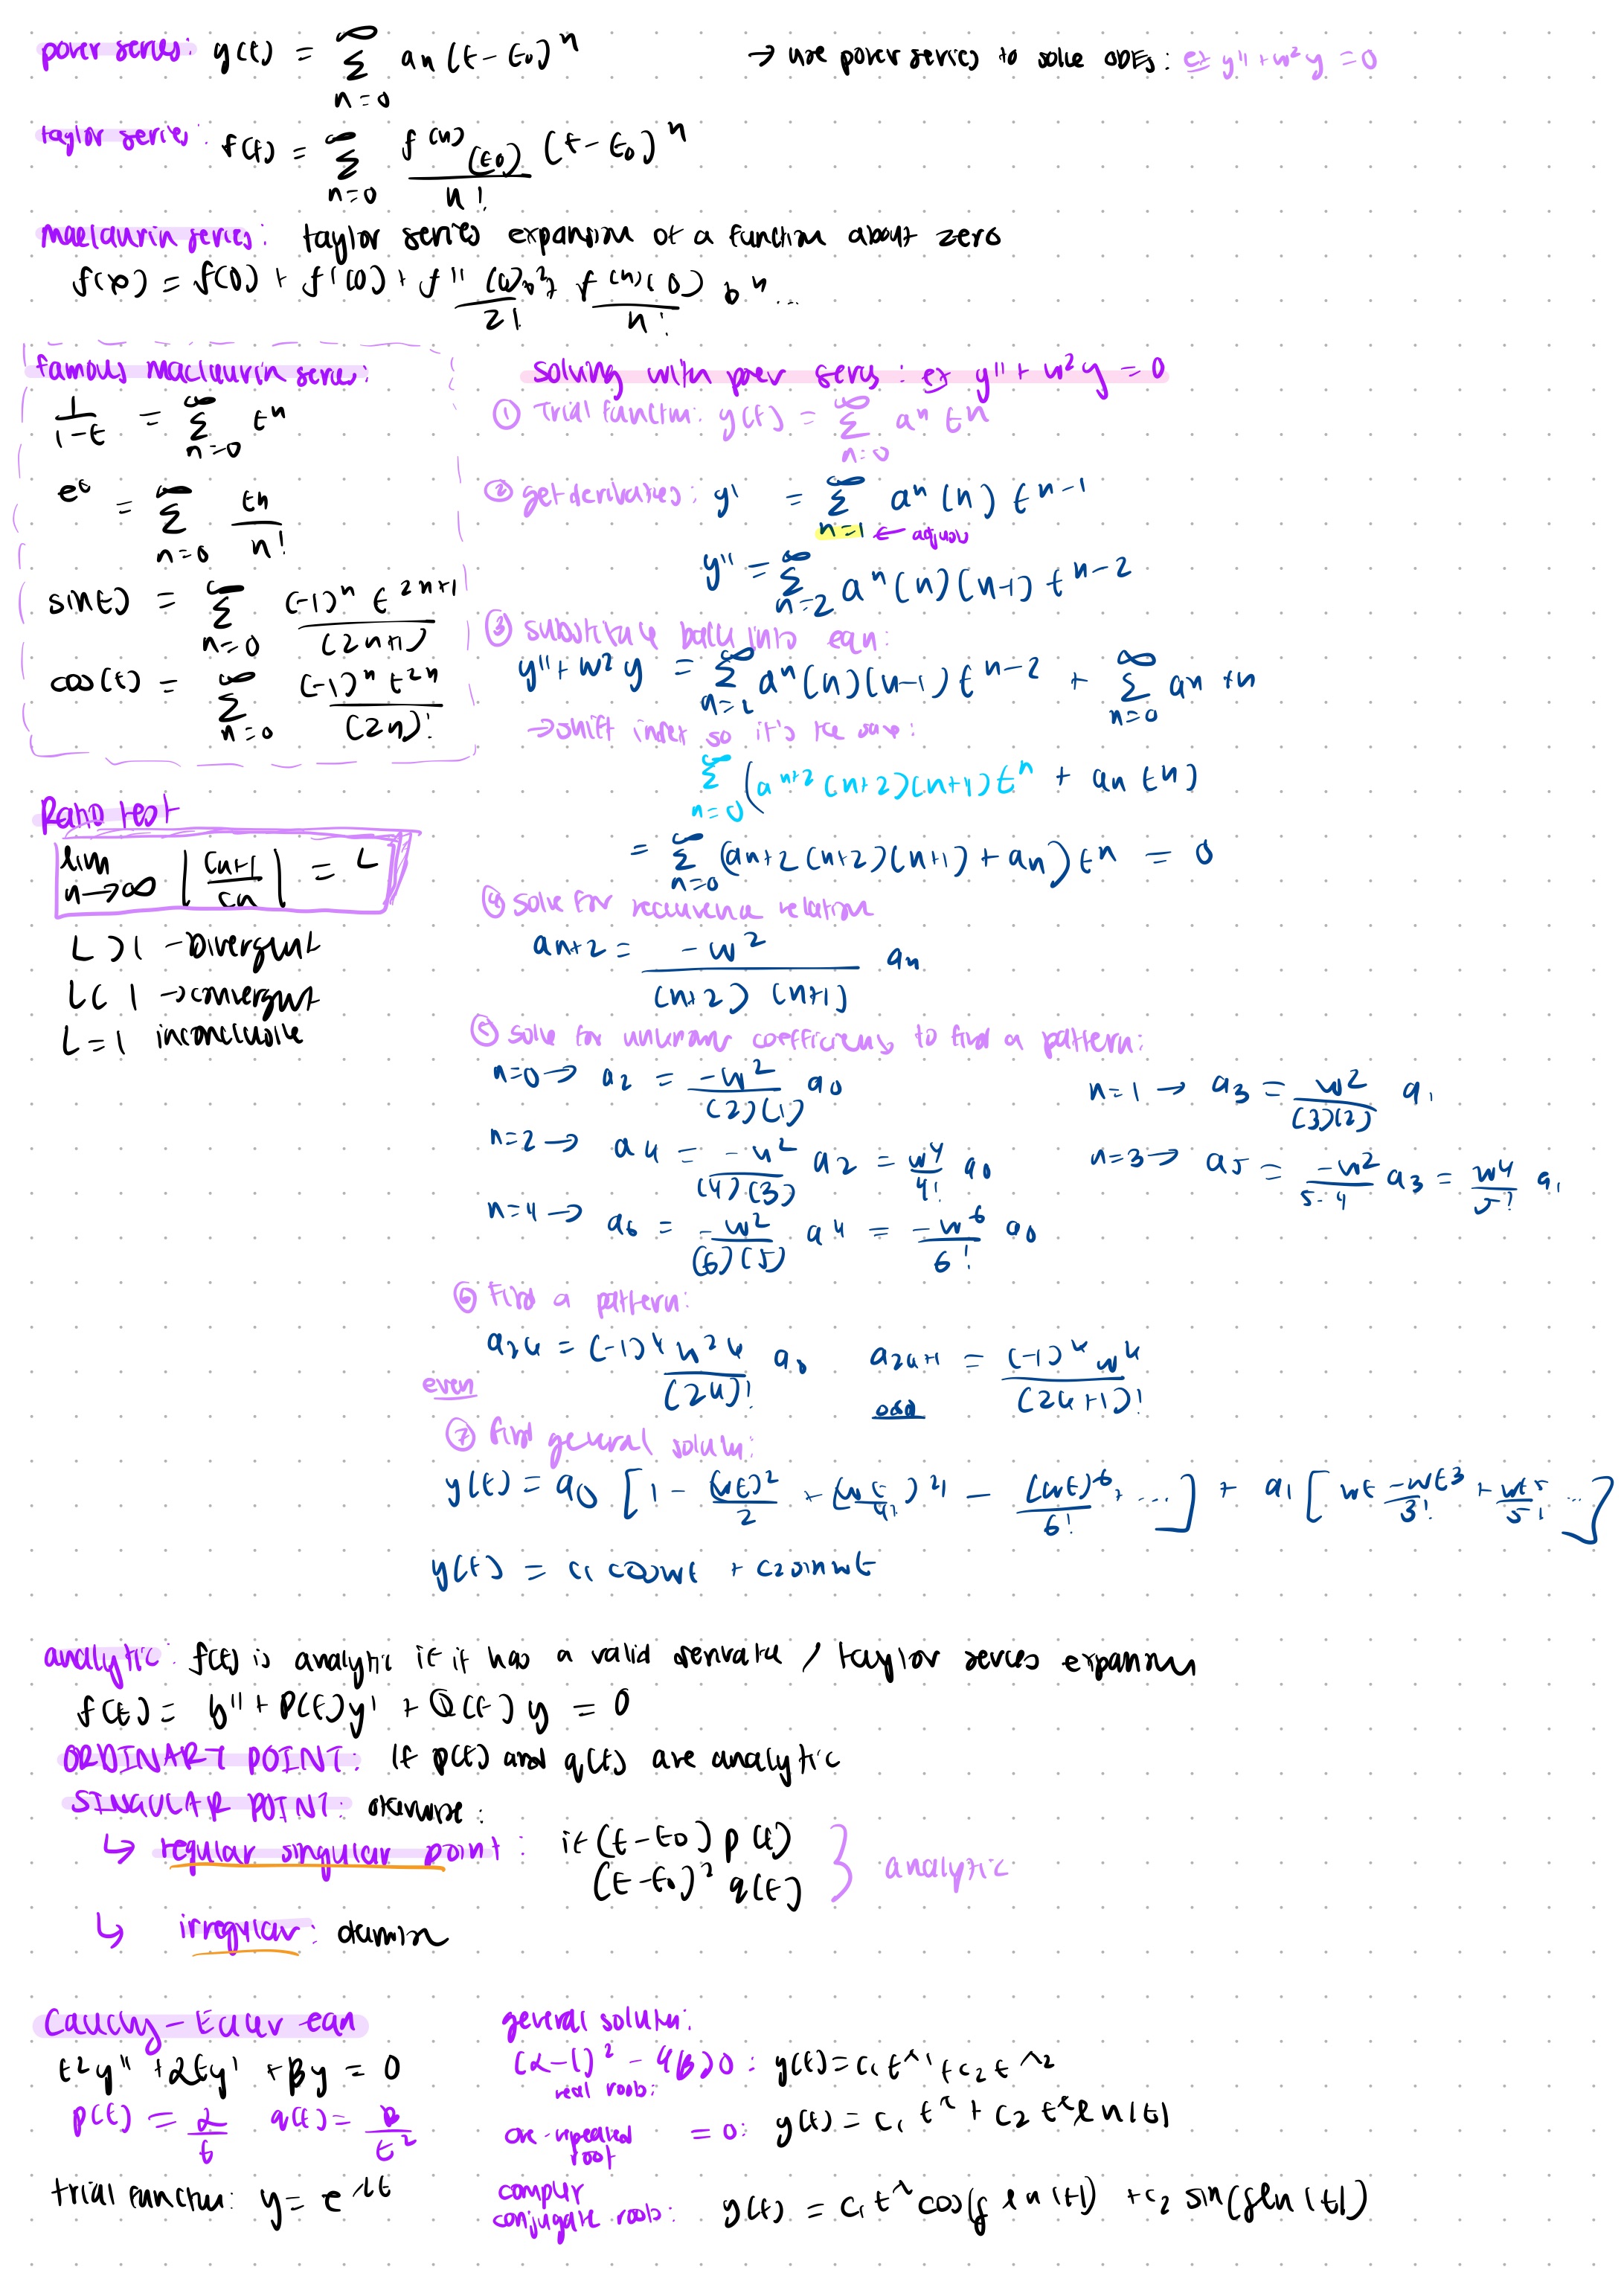 power series: y(t) = ∞ Σ n=0 an (t - t0)^n → use power series to solve ODEs: ex y'' + w²y = 0
taylor series: f(t) = ∞ Σ n=0 f^(n)(t0) / n! (t - t0)^n
maclaurin series: taylor series expansion of a function about zero
f(x) = f(0) + f'(0) + f''(0) / 2! f^(n)(0) / n! ...
famous maclaurin series:
1/(1-t) = ∞ Σ n=0 t^n
e^t = ∞ Σ n=0 t^n / n!
sin(t) = ∞ Σ n=0 (-1)^n t^(2n+1) / (2n+1)
cos(t) = ∞ Σ n=0 (-1)^n t^(2n) / (2n)!
Ratio test
lim n→∞ | cn+1 / cn | = L
L > 1 - Divergent
L < 1 → convergent
L = 1 inconclusive
solving with power series: ex y'' + w²y = 0
① Trial function: y(t) = ∞ Σ n=0 a^n t^n
② get derivatives: y' = ∞ Σ n=1 a^n (n) t^(n-1)
← adjust
y'' = ∞ Σ n=2 a^n (n)(n-1) t^(n-2)
③ substitute back into eqn:
y'' + w²y = ∞ Σ n=2 a^n (n)(n-1) t^(n-2) + ∞ Σ n=0 an t^n
→ shift index so it's the same:
∞ Σ n=0 (a^(n+2) (n+2)(n+1) t^n + an t^n)
= ∞ Σ n=0 (an+2 (n+2)(n+1) + an) t^n = 0
④ solve for recurrence relation
an+2 = -w² / (n+2)(n+1) an
⑤ solve for unknown coefficients to find a pattern:
n=0 → a2 = -w² / (2)(1) a0 n=1 → a3 = w² / (3)(2) a1
n=2 → a4 = -w² / (4)(3) a2 = w⁴ / 4! a0 n=3 → a5 = -w² / 5·4 a3 = w⁴ / 5! a1
n=4 → a6 = -w² / (6)(5) a4 = -w⁶ / 6! a0
⑥ Find a pattern:
a2k = (-1)^k w^(2k) / (2k)! a0 a2k+1 = (-1)^k w^k / (2k+1)!
even odd
⑦ find general solution:
y(t) = a0 [1 - (wt)²/2 + (wt/4!)⁴ - (wt)⁶/6! + ...] + a1 [wt - wt³/3! + wt⁵/5! ...]
y(t) = c1 cos wt + c2 sin wt
analytic: f(t) is analytic if it has a valid derivative / taylor series expansion
f(t) = y'' + P(t)y' + Q(t)y = 0
ORDINARY POINT: If p(t) and q(t) are analytic
SINGULAR POINT: otherwise:
↳ regular singular point: if (t - t0) p(t)
(t - t0)² q(t) } analytic
↳ irregular: otherwise
Cauchy-Euler eqn
t²y'' + αty' + βy = 0
p(t) = α/t q(t) = β/t²
trial function: y = e^λt
general solution:
(α-1)² - 4β > 0: y(t) = c1 t^λ1 + c2 t^λ2
real roots:
one repeated root = 0: y(t) = c1 t^r + c2 t^r ln|t|
complex conjugate roots: y(t) = c1 t^λ cos(f ln|t|) + c2 sin(f ln|t|)